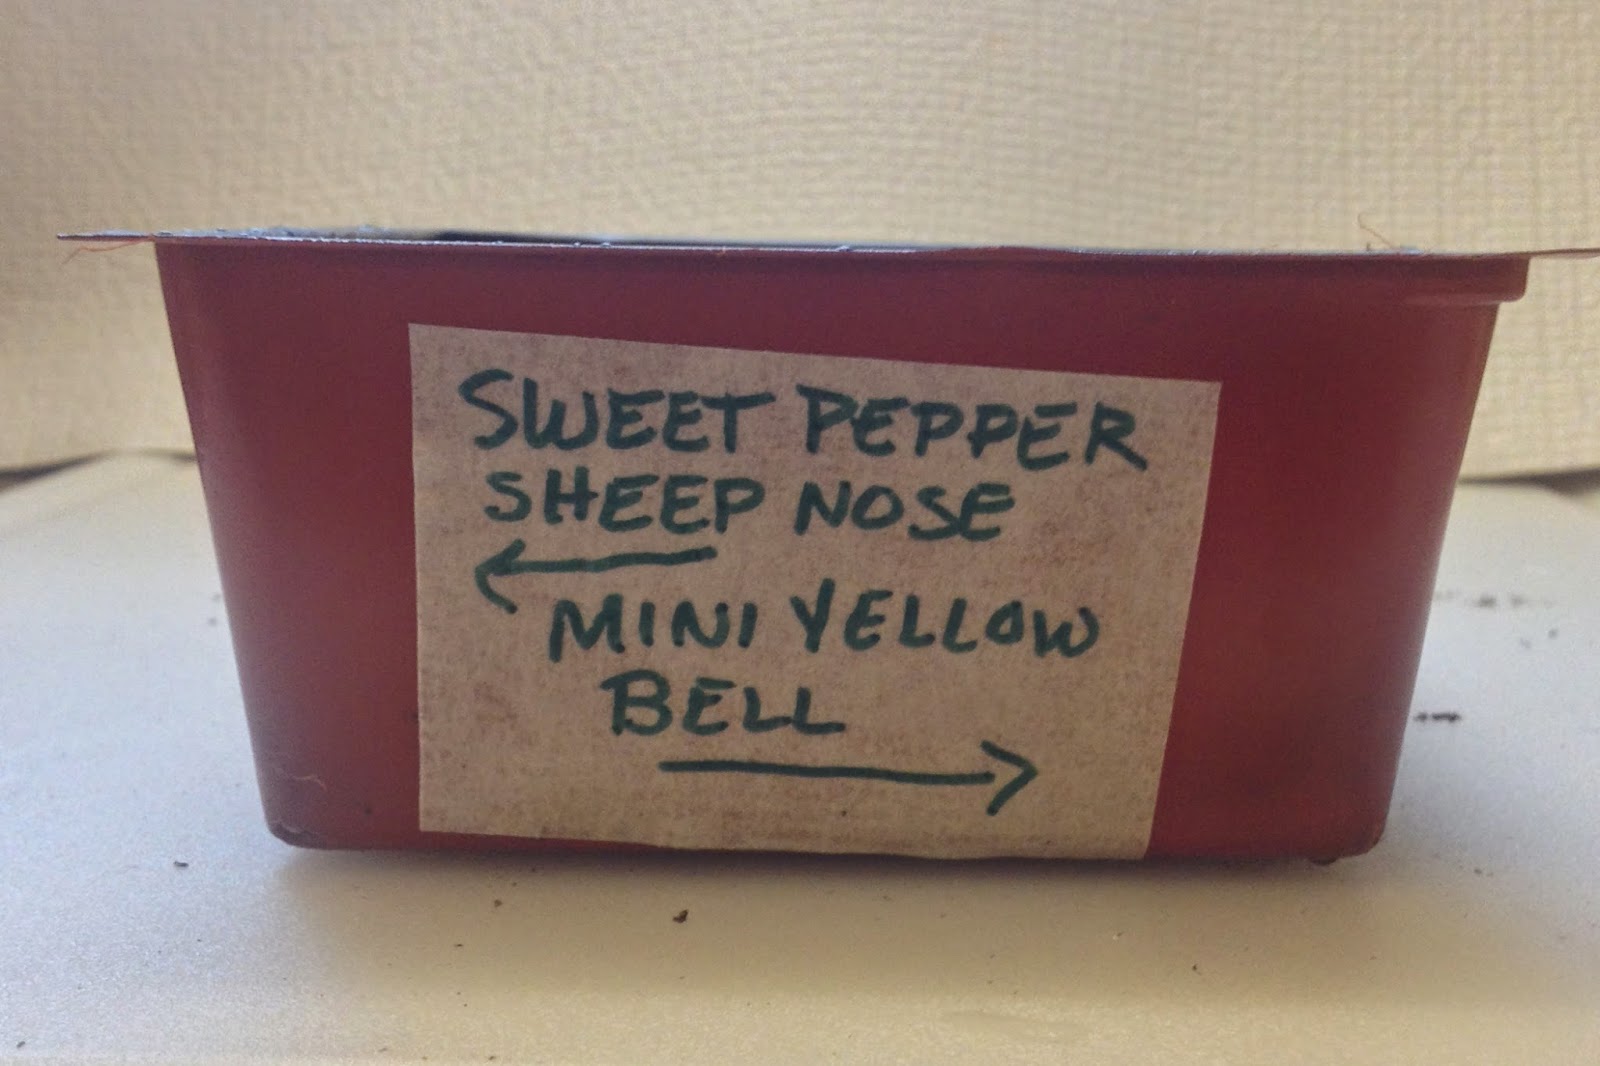 SWEET PEPPER
SHEEP NOSE
←
MINI YELLOW
BELL
→